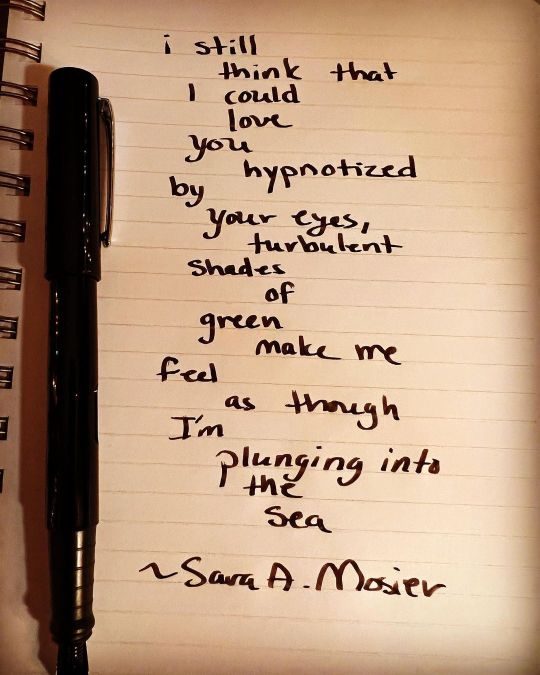 i still
think that
I could
love
you
hypnotized
by
your eyes,
turbulent
shades
of
green
make me
feel
as though
I'm
plunging into
the
sea
~Sara A. Mosier